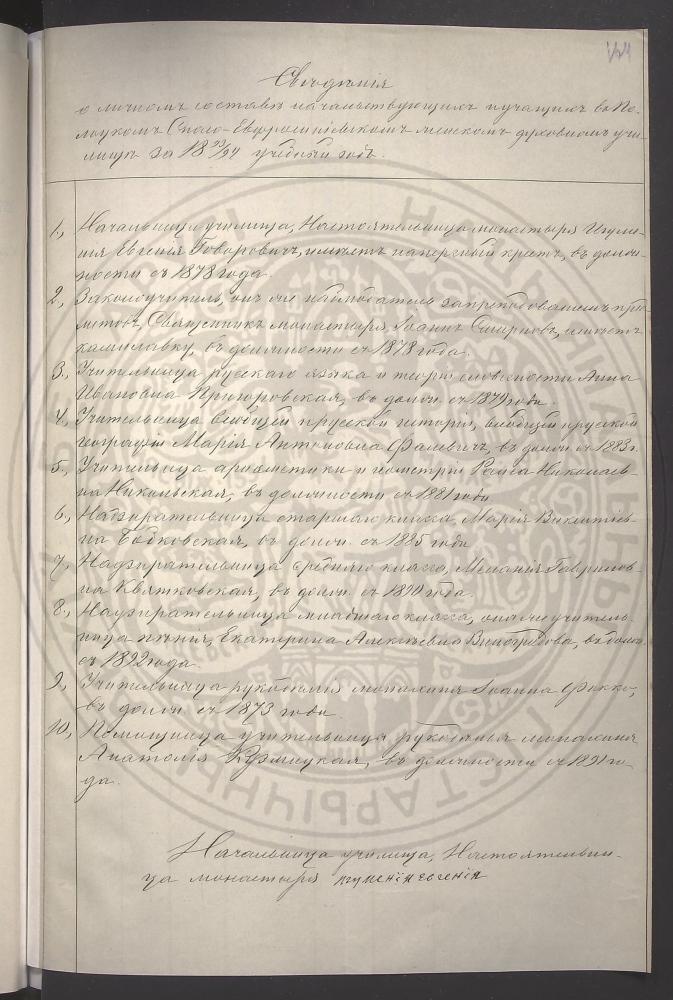 Свѣдѣнія
о личномъ составѣ начальствующихъ и учащихъ въ По-
лоцкомъ Спасо-Евфросиніевскомъ женскомъ духовномъ учи-
лищѣ за 1893/94 учебный годъ.
1, Начальница училища, Настоятельница монастыря Игуме-
нія Евгенія Говоровичъ, имѣетъ наперсный крестъ, въ долж-
ности съ 1878 года.
2, Законоучитель, онъ же наблюдатель за преподаваніемъ пред-
метовъ, Священникъ монастыря, Іоаннъ Смирновъ, имѣетъ
камилавку, въ должности съ 1878 года.
3, Учительница русскаго языка и теоріи словесности Анна
Ивановна Пригоровская, въ должн. съ 1879 года.
4, Учительница всеобщей и русской исторіи, всеобщей и русской
географіи Марія Антоновна Фалевичъ, въ должн. съ 1883 г.
5, Учительница ариѳметики и геометріи Раиса Николаев-
на Никольская, въ должности съ 1881 года
6, Надзирательница старшаго класса, Марія Викентіев-
на Бобковская, въ должн. съ 1885 года
7, Надзирательница средняго класса, Меланія Гаврилов-
на Квятковская, въ должн. съ 1890 года.
8, Надзирательница младшаго класса, она же учитель-
ница пѣнія, Екатерина Алексѣевна Виноградова, въ должн.
съ 1892 года.
9, Учительница рукодѣлія монахиня Іоанна Фокко,
въ должн. съ 1873 года
10, Помощница учительницы рукодѣлія монахиня
Анатолія Кузмицкая, въ должности съ 1891 го-
да.
Начальница училища, Настоятельни-
ца монастыря игуменія евгенія